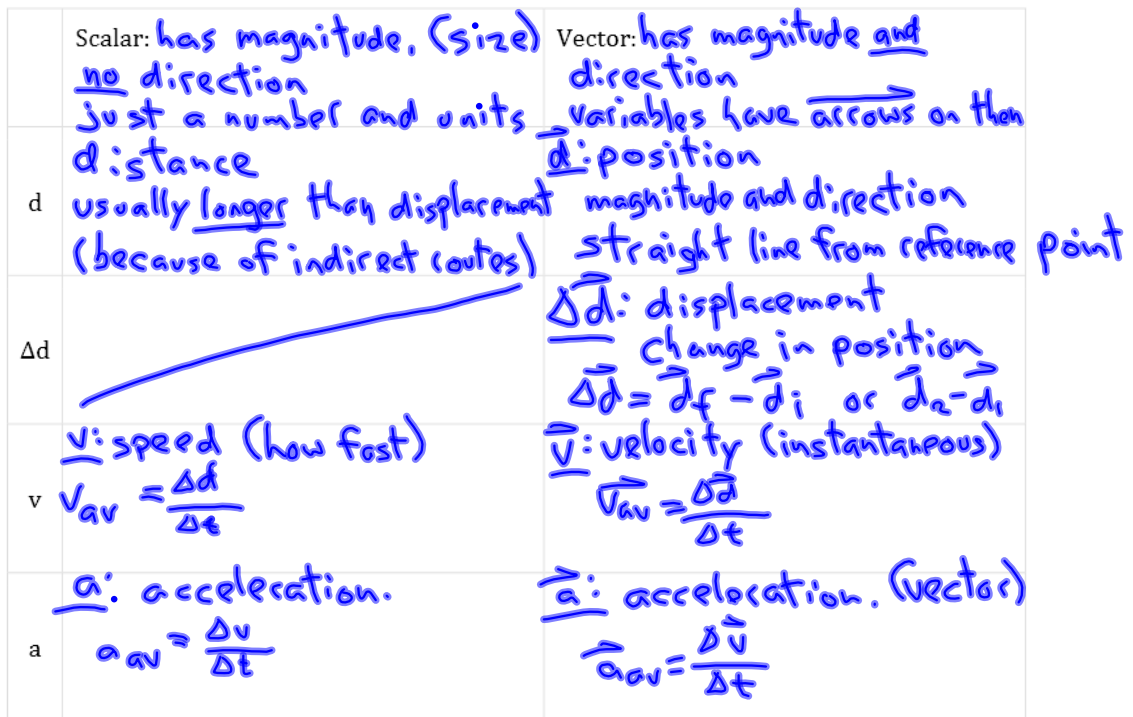 Scalar: has magnitude. (size)
no direction
just a number and units
Vector: has magnitude and
direction
variables have arrows on then
d
distance
usually longer than displacement
(because of indirect routes)
d⃗: position
magnitude and direction
straight line from reference point
Δd
Δd⃗: displacement
change in position
Δd⃗ = d⃗f - d⃗i or d⃗2 - d⃗1
v
v: speed (how fast)
Vav = Δd/Δt
v⃗: velocity (instantaneous)
V⃗av = Δd⃗/Δt
a
a: acceleration.
aav = Δv/Δt
a⃗: acceleration. (vector)
a⃗av = Δv⃗/Δt